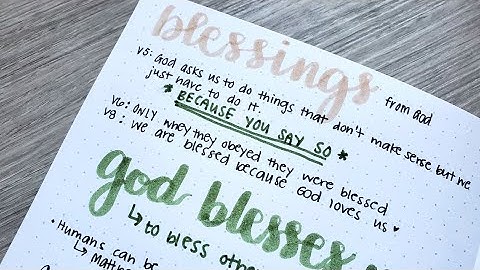 blessings from God
v5: God asks us to do things that don't make sense but we
just have to do it.
* BECAUSE YOU SAY SO *
v6: ONLY when they obeyed they were blessed
v8: we are blessed because God loves us ♥
god blesses
↳ to bless
• Humans can be
↳